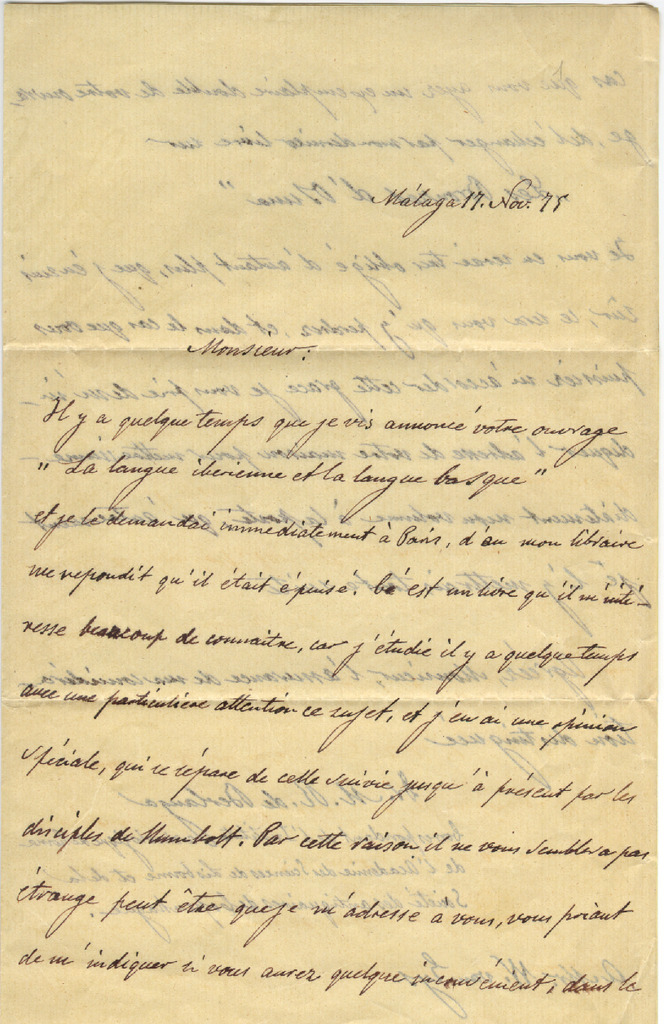 Málaga 17. Nov. 75
Monsieur:
Il y a quelque temps que je vis annoncé votre ouvrage
" La langue iberienne et la langue basque"
et je le demandai immédiatement à Paris, d'au mon libraire
me repondit qu'il était épuisé. Cé est un livre qu'il m'inté-
resse beaucoup de connaitre, car j'étudie il y a quelque temps
avec une particuliere attention ce sujet, et j'en ai une opinion
spéciale, qui se sépare de celle suivie jusqu'à présent par les
disciples de Humbolt. Par cette raison il ne vous semblera pas
étrange peut être que je m'adresse a vous, vous priant
de m'indiquer si vous aurez quelque inconvénient, dans le